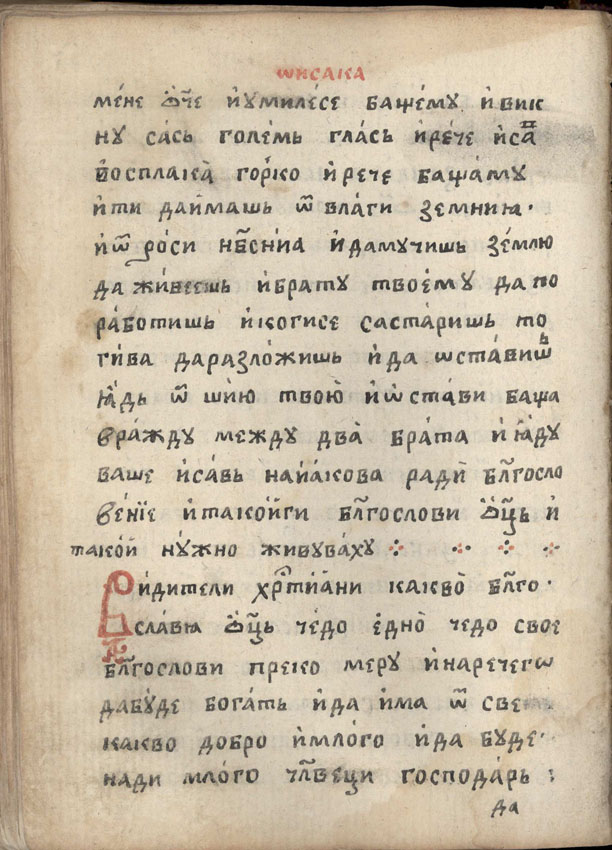 ѡисака
мене ѿч҃е и умилесе бащему и вик
ну сась големь глась и рече иса
восплака горко и рече бащаму
ити даимашь ѿ влаги земнию ·
и ѿ роси нб҃сния и дамучишь землю
да живеешь и брату твоему да по
работишь и когисе састаришь то
гива даразложишь и да ѡставишь
ꙗдь ѿ шию твою и ѡстави баща
вражду между два брата и ꙗду
ваше исавь наиакова ради бл҃госло
вение и такойги бл҃гослови ѿц҃ь и
такой нужно живуваху
видители хр҃тиӑни какво бл҃го ·
славѧ ѿц҃ь чедо едно чедо свое
бл҃гослови преко меру и наречегѡ
дабуде богать и да има ѿ све
какво добро и млого и да буде ·
нади млого чл҃веци господарь :
да